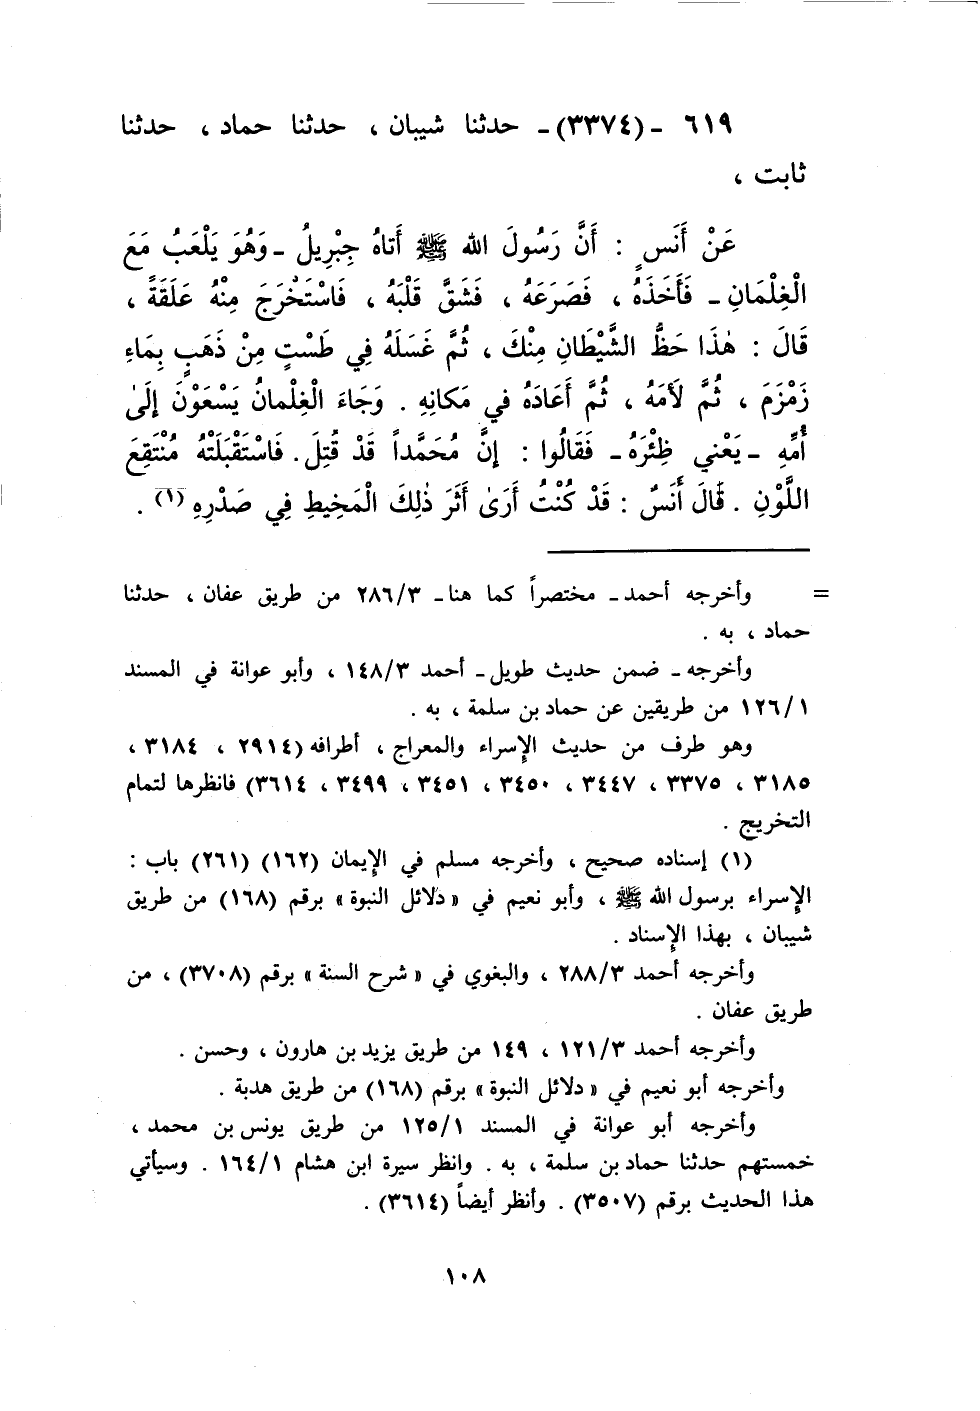 ٦١٩ -(٣٣٧٤)- حدثنا شيبان ، حدثنا حماد ، حدثنا
ثابت ،
عَنْ أَنَسٍ : أَنَّ رَسُولَ الله ﷺ أَتَاهُ جِبْرِيلُ -وَهُوَ يَلْعَبُ مَعَ
الْغِلْمَانِ- فَأَخَذَهُ ، فَصَرَعَهُ ، فَشَقَّ قَلْبَهُ ، فَاسْتَخْرَجَ مِنْهُ عَلَقَةً ،
قَالَ : هٰذَا حَظُّ الشَّيْطَانِ مِنْكَ ، ثُمَّ غَسَلَهُ فِي طَسْتٍ مِنْ ذَهَبٍ بِمَاءِ
زَمْزَمَ ، ثُمَّ لَأَمَهُ ، ثُمَّ أَعَادَهُ في مَكانِهِ . وَجَاءَ الْغِلْمانُ يَسْعَوْنَ إِلَىٰ
أُمِّهِ -يَعْني ظِئْرَهُ- فَقَالُوا : إِنَّ مُحَمَّداً قَدْ قُتِلَ. فَاسْتَقْبَلَتْهُ مُنْتَقِعَ
اللَّوْنِ . قَالَ أَنَسٌ : قَدْ كُنْتُ أَرَىٰ أَثَرَ ذٰلِكَ الْمَخِيطِ فِي صَدْرِهِ (١) .
= وأخرجه أحمد- مختصراً كما هنا- ٢٨٦/٣ من طريق عفان ، حدثنا
حماد ، به .
وأخرجه- ضمن حديث طويل- أحمد ١٤٨/٣ ، وأبو عوانة في المسند
١٢٦/١ من طريقين عن حماد بن سلمة ، به .
وهو طرف من حديث الإسراء والمعراج ، أطرافه (٢٩١٤ ، ٣١٨٤ ،
٣١٨٥ ، ٣٣٧٥ ، ٣٤٤٧ ، ٣٤٥٠ ، ٣٤٥١ ، ٣٤٩٩ ، ٣٦١٤) فانظرها لتمام
التخريج .
(١) إسناده صحيح ، وأخرجه مسلم في الإيمان (١٦٢) (٢٦١) باب :
الإسراء برسول الله ﷺ ، وأبو نعيم في « دلائل النبوة » برقم (١٦٨) من طريق
شيبان ، بهذا الإسناد .
وأخرجه أحمد ٢٨٨/٣ ، والبغوي في « شرح السنة » برقم (٣٧٠٨) ، من
طريق عفان .
وأخرجه أحمد ١٢١/٣ ، ١٤٩ من طريق يزيد بن هارون ، وحسن .
وأخرجه أبو نعيم في « دلائل النبوة » برقم (١٦٨) من طريق هدبة .
وأخرجه أبو عوانة في المسند ١٢٥/١ من طريق يونس بن محمد ،
خمستهم حدثنا حماد بن سلمة ، به . وانظر سيرة ابن هشام ١٦٤/١ . وسيأتي
هذا الحديث برقم (٣٥٠٧) . وأنظر أيضاً (٣٦١٤) .
١٠٨